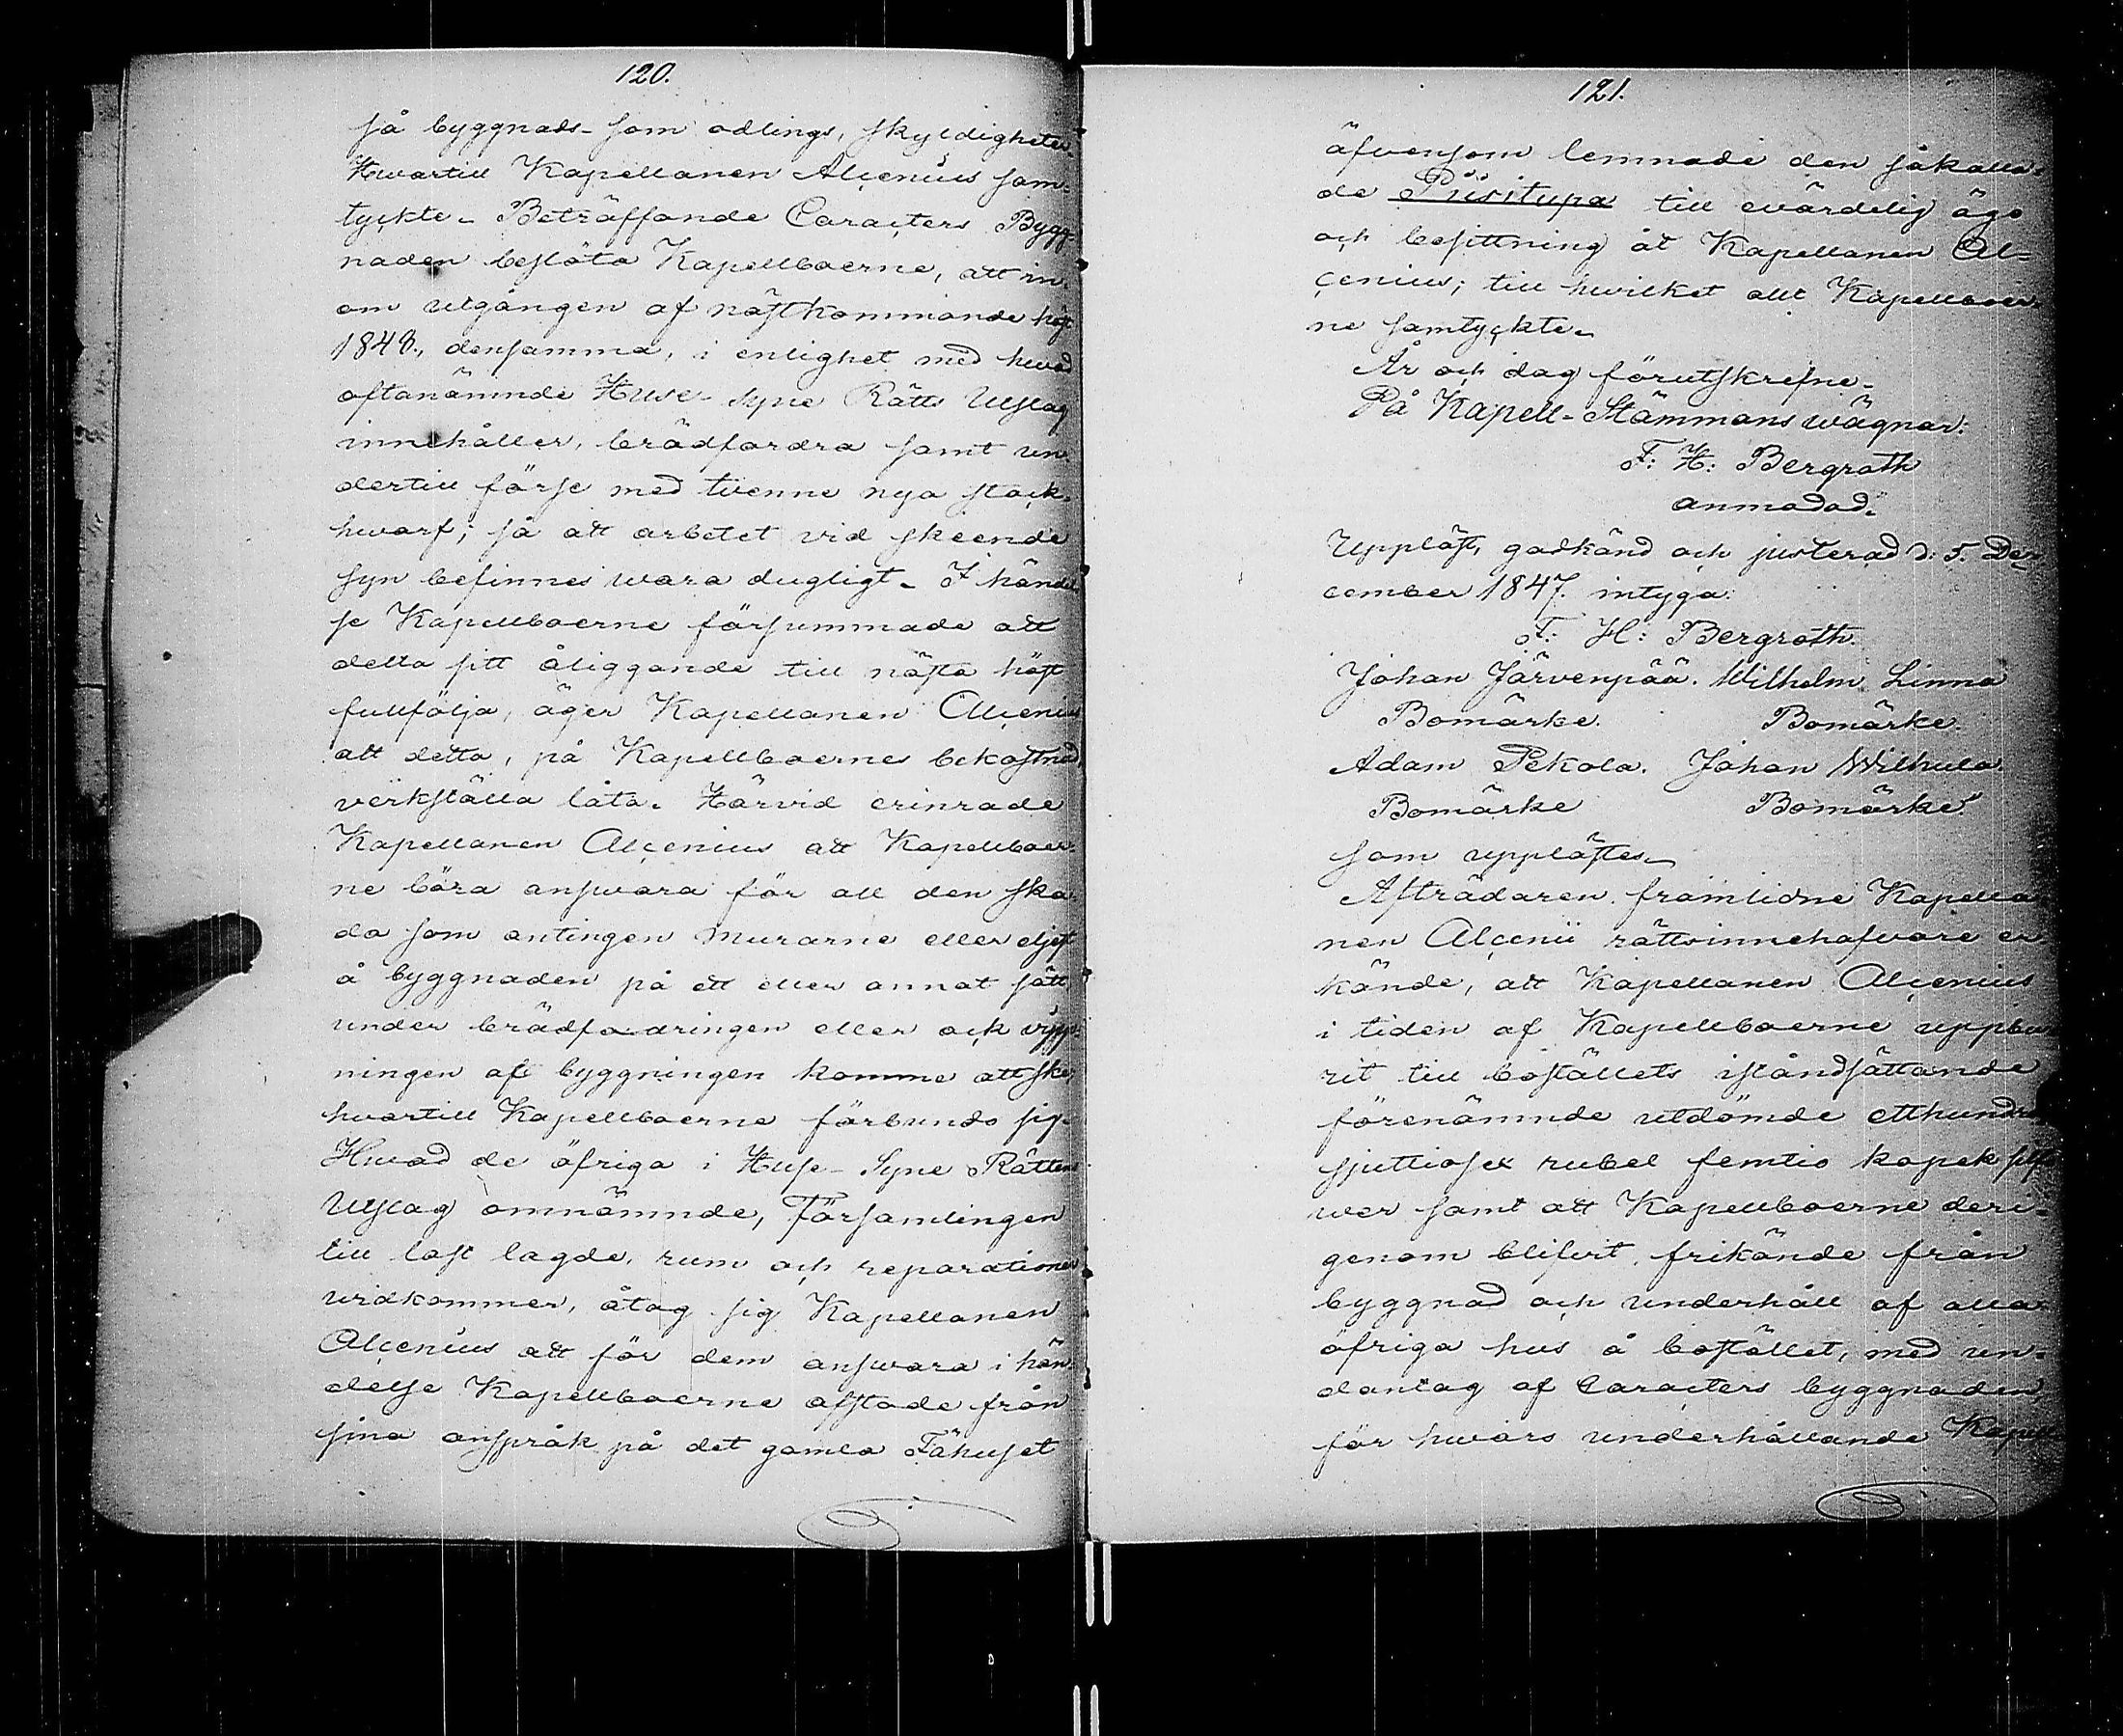 120.
så byggnads- som odlings, skyldigheter.
Hwartill Kapellanen Alcenius sam-
tyckte. Beträffande Caracters Bygg-
naden beslöto Kapellboerne, att in-
om utgången af nästkommande höst
1848., densamma, i enlighet med hwad
oftanämnde Huse-Syne Rätts Utslag
innehåller, brädfordra samt un-
dertill förse med tvenne nya stock-
hwarf; så att arbetet vid skeende
syn befinnes wara dugligt. I händel-
se Kapellboerne försummade att
detta sitt åliggande till nästa höst
fullfölja, äger Kapellanen Alcenius
att detta, på Kapellboernes bekostnad,
verkställa låta. Härvid erinrade
Kapellanen Alcenius att Kapellboer-
ne böra answara för all den ska-
da som antingen murarne eller eljest
å byggnaden på ett eller annat sätt,
under brädfodringen eller ock
ningen af byggningen komme att ske,
hwartill Kapellboerne förbundo sig.
Hwad de öfriga i Huse-Syne Rättens
Utslag omnämnde, Församlingen
till last lagde, rum och reparationer
widkommer, åtog sig Kapellanen
Alcenius att för dem answara i hän-
delse Kapellboerne afstode från
sina anspråk på det gamla Fähuset
121.
äfwensom lemnade den såkalla-
de Piisitupa till evärdelig ägo
och besittning åt Kapellanen Al-
cenius; till hwilket allt Kapellboer-
ne samtyckte.
År och dag förutskrefne.
På Kapell-Stämmans wägnar:
F: H: Bergroth
anmodad.
Uppläst, godkänd och justerad d: 5. De-
cember 1847. intyga:
F: H: Bergroth.
Johan Järvenpää. Wilhelm Linna
Bomärke. Bomärke.
Adam Pekola. Johan Wilhula.
Bomärke Bomärke."
som upplästes.
Afträdaren framlidne Kapella-
nen Alcenii rättsinnehafware er-
kände, att Kapellanen Alcenius
i tiden af Kapellboerne uppbu-
rit till boställets iståndsättande
förenämnde utdömde etthundra
sjuttiosex rubel femtio kopek silf-
wer samt att Kapellboerne deri-
genom blifvit frikände från
byggnad och underhåll af alla
öfriga hus å bostället, med un-
dantag af Caracters byggnaden,
för hwars underhållande Kapell-